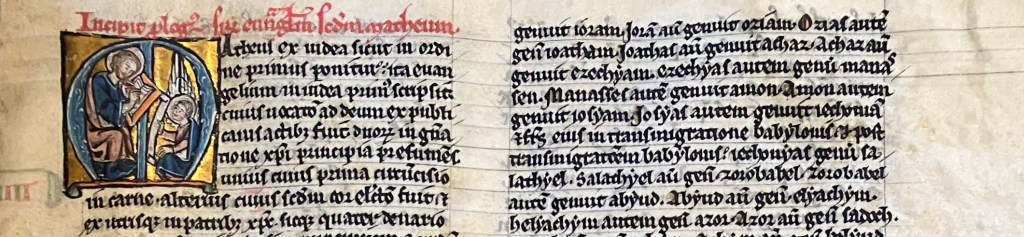 Incipit plog᷒ sup euu̅gl̅m scd̅m matheum.
Matheus ex iudea sicut in ordi
ne primus ponitur: ita euan
gelium in iudea prim᷒ scripsit:
cuius uocatō ad deum ex publi
canis actib᷒ fuit duoꝝ in gn̅a
tione xp̅i principia presumēs
unius cuius prima circūcisio
in carne. alterius cuius scd̅m cor elc̅tō fuit ⁊
ex utrisq᷒ in patrib᷒ xp̅c. sicq᷒ quater denario
genuit ioram. Iorā au̅ genuit oziam. Ozias autē
gen̅ ioatham. Ioathas au̅ genuit achaz. Achaz au̅
genuit ezechyam. ezechyas autem genu̅ manas
sen. Manasses autē genuit amon. Amon autem
genuit iosyam. Iosyas autem genuit iechoniā
⁊ fr̅s eius in transmigratione babylonis. ⁊ post
transmigratiōem babylonis: iechonyas genu̅ sa
lathyel. Salathyel au̅ gen̅ zorobabel. Zorobabel
autē genuit abyud. Abyud au̅ gen̅ elyachym.
helyachym autem gen̅ azor. Azor au̅ gen̅ sadoch.